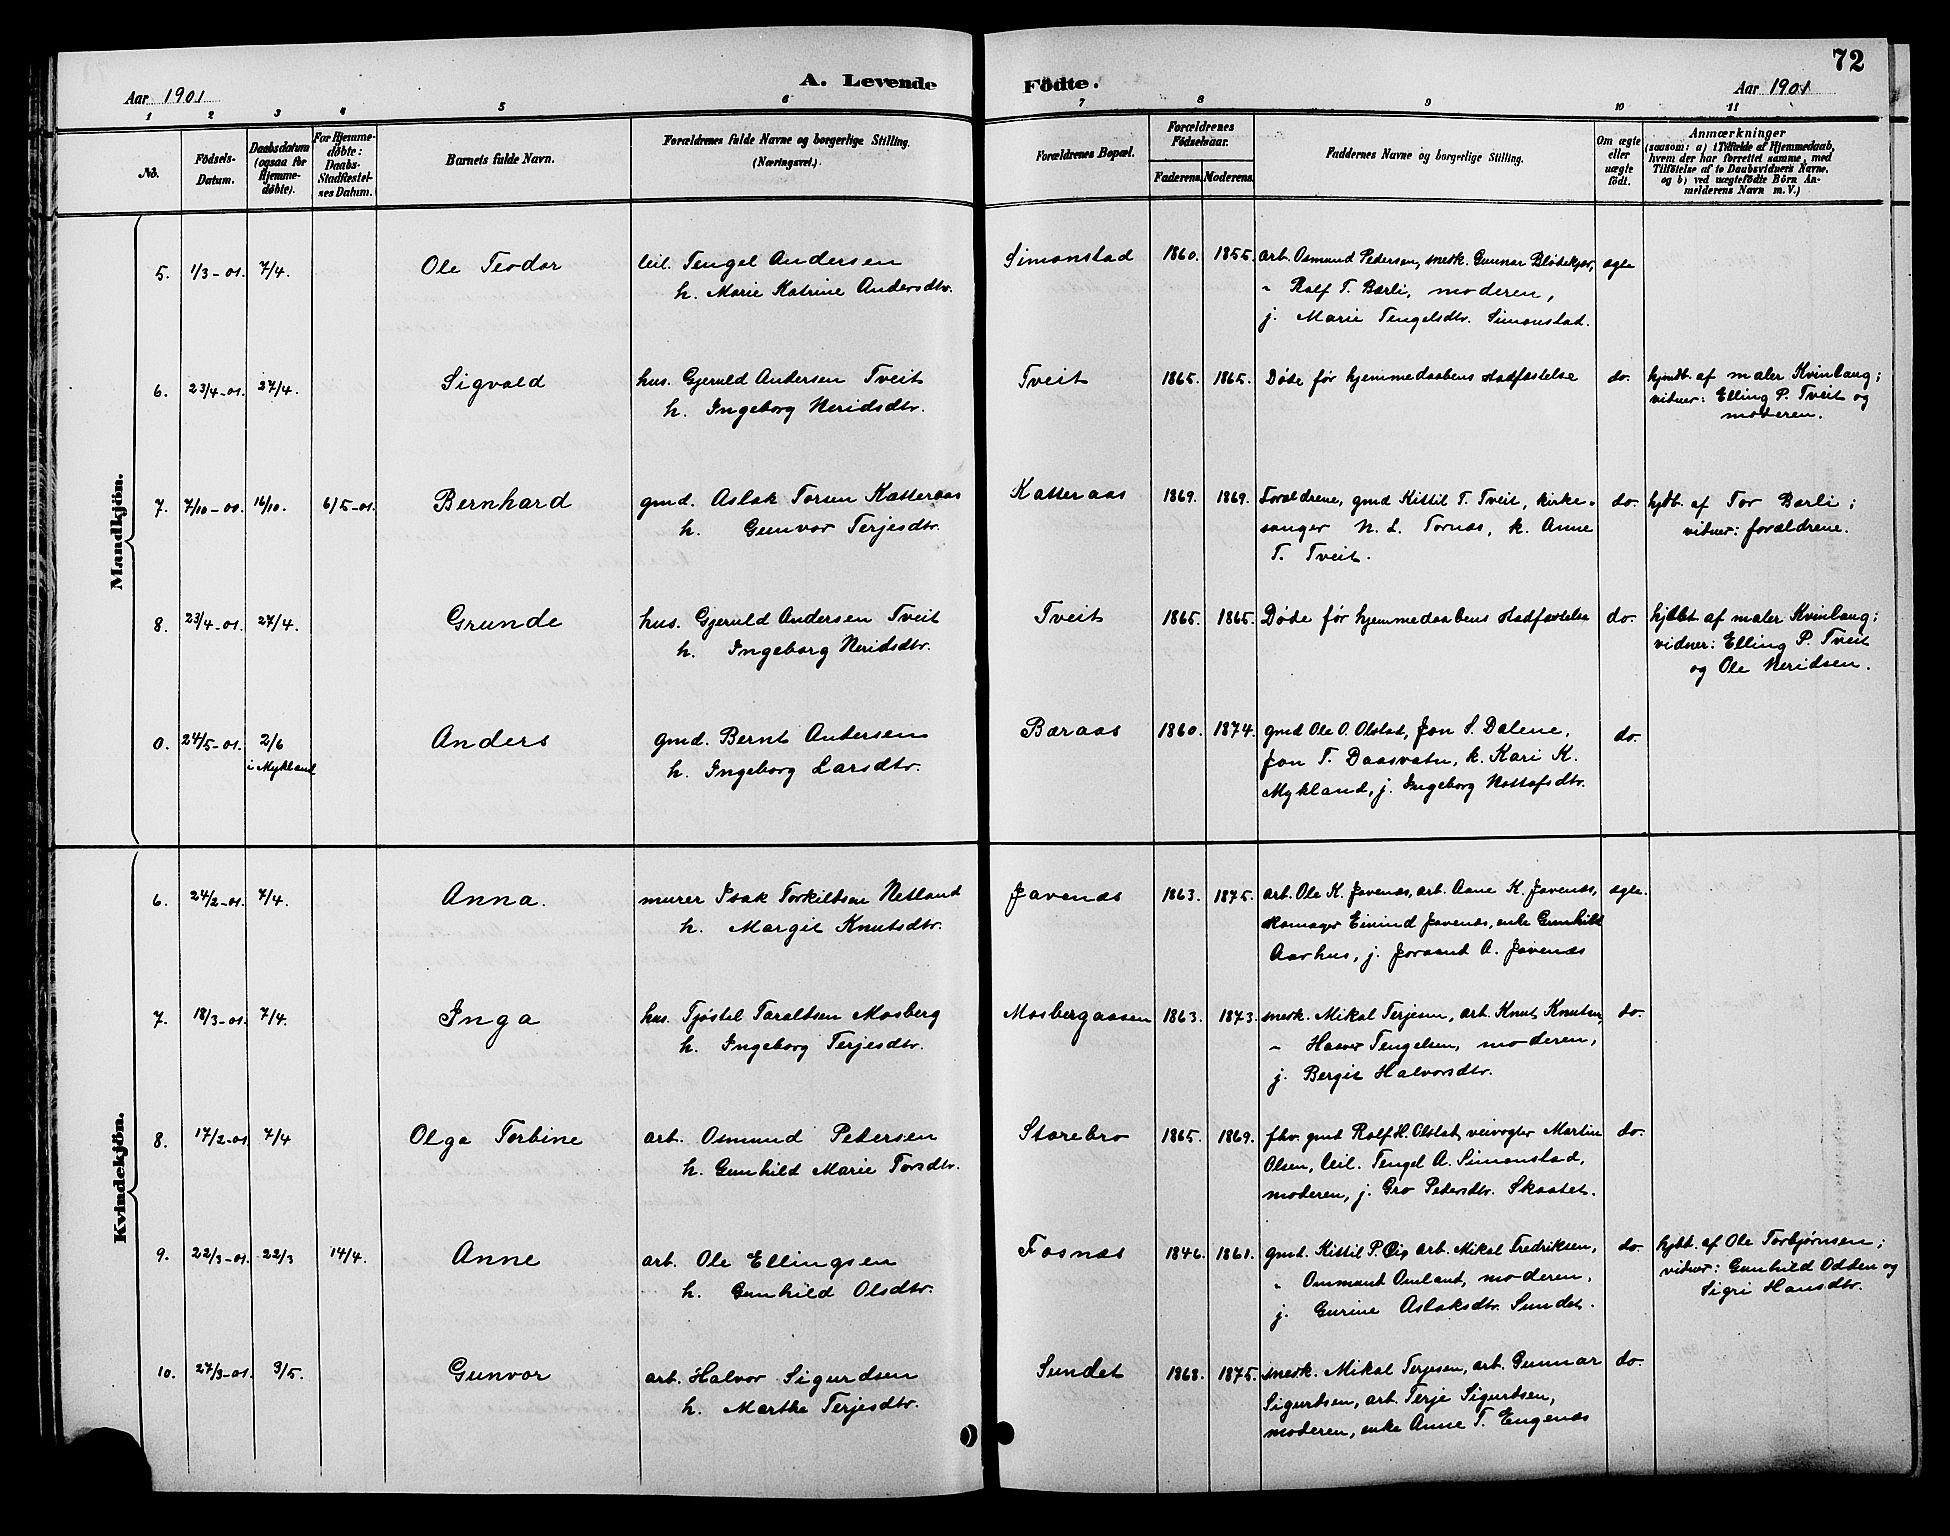 72
A. Levende Födte.
Aar 1901
Aar 1901
1 2 3 4 5 6 7 8 9 10 11
No.
Födsels-
Datum.
Daabsdatum
(ogsaa for
Hjemme-
døbte).
For Hjemme-
døbte:
Daabs-
Stadfæstel-
ses Datum.
Barnets fulde Navn.
Forældrenes fulde Navne og borgerlige Stilling.
(Næringsvei.)
Forældrenes Bopæl.
Forældrenes
Födselsaar.
Faderens. Moderens.
Faddernes Navne og borgerlige Stilling.
Om ægte
eller
uægte
født.
Anmærkninger
(saasom: a) i Tilfælde af Hjemmedaab,
hvem der har forrettet samme, med
Tilföielse af to Daabsvidners Navne,
og b) ved uægtefödte Börn An-
melderens Navn m. V.)
Mandkjön.
5. 1/3-01. 7/4. Ole Teodor leil. Tengel Andersen Simonstad 1860. 1855. arb. Osmund Pedersen, snedk. Gunnar Blødekjær, ægte
h. Marie Katrine Andersdtr. " Ralf T. Barli, moderen,
j. Marie Tengelsdtr. Simonstad.
6. 23/4-01. 27/4. Sigvald hus. Gjeruld Andersen Tveit Tveit 1865. 1865. Døde før hjemmedaabens stadfæstelse do. hjmdbt. af maler Kvinlaug;
h. Ingeborg Neridsdtr. vidner: Elling P. Tveit og
moderen.
7. 7/10-00. 16/10. 6/5-01. Bernhard gmd. Aslak Torsen Katteraas Katteraas 1869. 1869. Forældrene, gmd Kittil T. Tveit, kirke- do. hjdbt. af Tor Barli;
h. Gunvor Terjesdtr. sanger N. L. Tornæs, k. Anne vidner: forældrene.
T. Tveit.
8. 23/4-01. 27/4. Grunde hus. Gjeruld Andersen Tveit Tveit 1865. 1865. Døde før hjemmedaabens stadfæstelse do. hjdbt af maler Kvinlaug;
h. Ingeborg Neridsdtr. vidner: Elling P. Tveit
og Ole Neridsen.
0. 24/5-01. 2/6 Anders gmd. Bernt Andersen Bæraas 1860. 1874. gmd Ole O. Olstad, Jon S. Dalene, do.
i Mykland h. Ingeborg Larsdtr. Jon T. Daasvatn, k. Kari K.
Mykland, j. Ingeborg Nottofsdtr.
Kvindekjön.
6. 24/2-01. 7/4. Anna. murer Isak Torkildsen Netland Javenæs 1863. 1875. arb. Ole K. Javenæs, arb. Aane K. Javenæs, ægte.
h. Margit Knutsdtr. skomager Eivind Javenæs, enke Gunhild
Aarhus, j. Joraand A. Javenæs
7. 18/3-01. 7/4. Inga hus. Tjøstel Taraldsen Mosberg Mosbergaasen 1863. 1873. snedk. Mikal Terjesen, arb. Knut Knutsen, do.
h. Ingeborg Terjesdtr. " Haavor Tengelsen, moderen,
j. Bergit Halvorsdtr.
8. 17/2-01. 7/4 Olga Torbine arb. Osmund Pedersen Storebro 1865. 1869. fhv. gmd Ralf H. Olstad, veivogter Martin do.
h. Gunhild Marie Torsdtr. Olsen, leil. Tengel A. Simonstad,
moderen, j. Gro Pedersdtr. Skaatet.
9. 22/3-01. 22/3 14/4. Anne arb. Ole Ellingsen Fosnæs 1846. 1861. gmd. Kittil P. arb. Mikal Fredriksen, do. hjdbt. af Ole Torbjørnsen;
h. Gunhild Olsdtr. " Ommund Omland, moderen, vidner: Gunhild Odden og
j. Gurine Aslaksdtr. Sundet. Sigri Hansdtr.
10. 27/3-01. 9/5. Gunvor arb. Halvor Sigurdsen Sundet 1868. 1875. snedk. Mikal Terjesen, arb. Gunnar do.
h. Marthe Terjesdtr. Sigurdsen, arb. Terje Sigurdsen,
moderen, enke Anne T. Engenæs